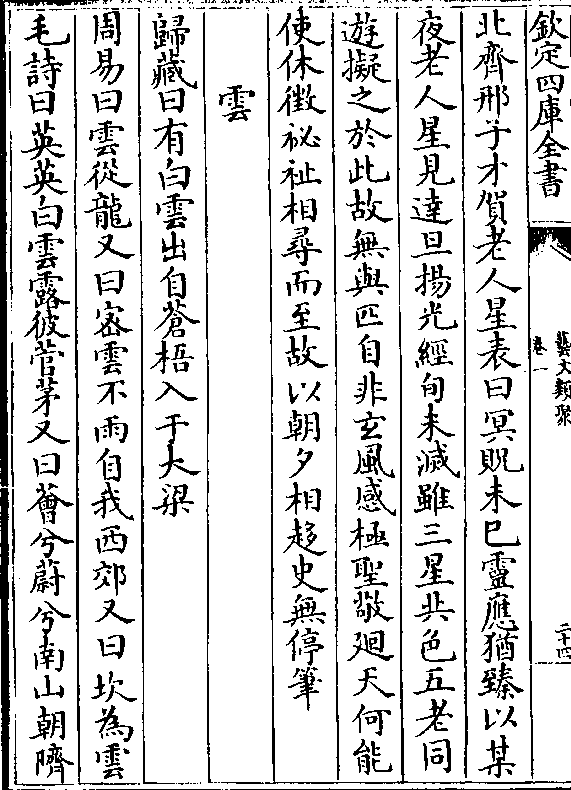 欽定四庫全書
藝文類聚
卷一
二十四
北齊邢子才賀老人星表曰冥貺未已靈應猶臻以某
夜老人星見達旦揚光經旬未滅雖三星共色五老同
遊擬之於此故無與匹自非玄風感極聖敬廻天何能
使休徵祕祉相尋而至故以朝夕相趍史無停筆
雲
歸藏曰有白雲出自蒼梧入于大梁
周易曰雲從龍又曰宻雲不雨自我西郊又曰坎為雲
毛詩曰英英白雲露彼菅茅又曰薈兮蔚兮南山朝隮